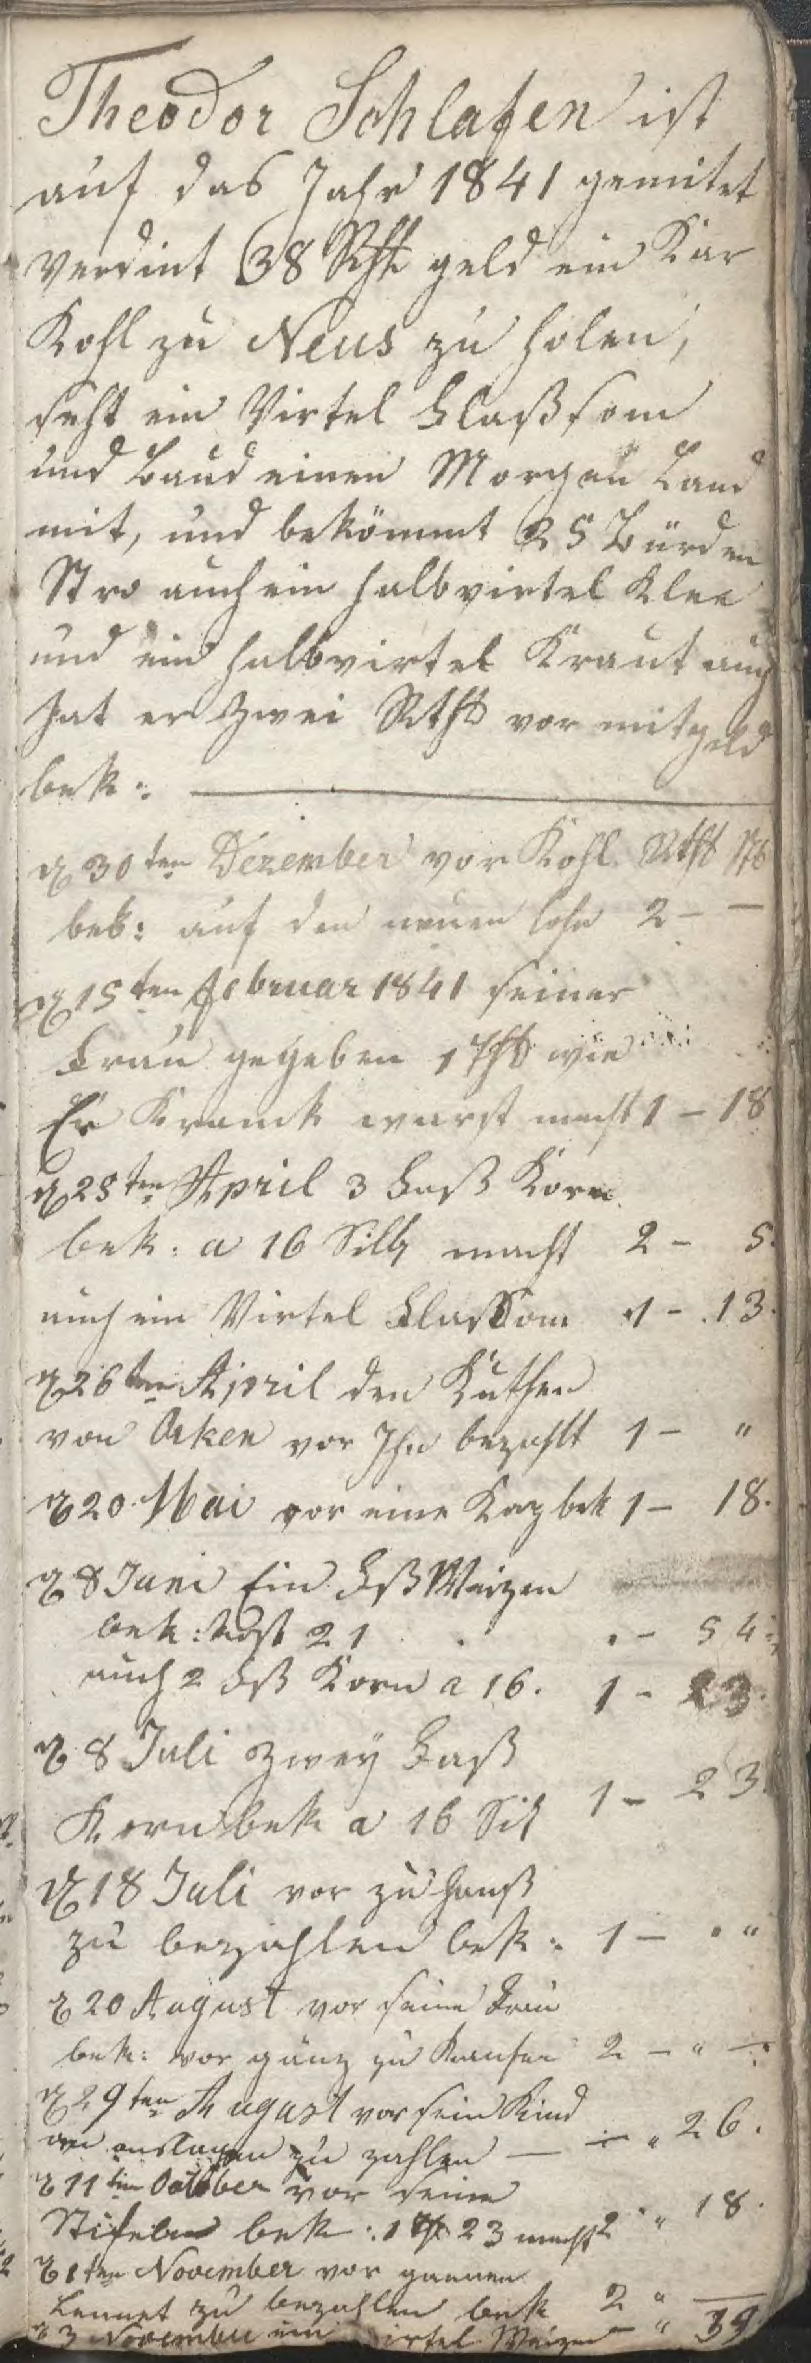 Theodor Schlafen ist
auf das Jahr 1841 gemitet
verdint 38 Rth geld ein Kar
Kohl zu Neus zu holen,
seht ein Virtel Flaßsom
und baud einen Morgen Land
mit, und bekömmt 25 Bürden
Stro auch ein halbvirtel Klee
und ein halbvirtel Kraut auch
hat er zwei Rth vor mitgeld
bek:
d 30ten Dezember vor Kohl Rth Stb
bek: auf den neuen lohn 2 - -
d 15ten Februar 1841 seiner
Frau gegeben 1 Th wie
Er Kranck warst macht 1 - 18
d 25ten April 3 Faß Korn
bek: a 16 Silbg macht 2 - 5.
auch ein Virtel Flaßsom 1 - 13.
d 26ten April den
von Orken vor Ihn bezahlt 1 - "
d 20. Mai vor eine Kap bek 1 - 18.
d 8 Juni Ein Fß Weizen
bek: 21 . - 54
auch 2 Fß Korn a 16. 1 - 23.
d 8 Juli zwey Faß
Korn bek a 16 Sil 1 - 23.
d 18 Juli vor zu Hauß
zu bezahlen bek: 1 - "
d 20 August vor seine Frau
bek: vor zu 2 - " -
d 29ten August vor sein Kind
zu zahlen - " 26.
d 11ten October vor seine
Stifelen bek: 1 Th 23 macht 2 " 18.
d 1ten November vor
zu bezahlen bek 2 " -
d 3 November ein Virtel Weizen - " 39